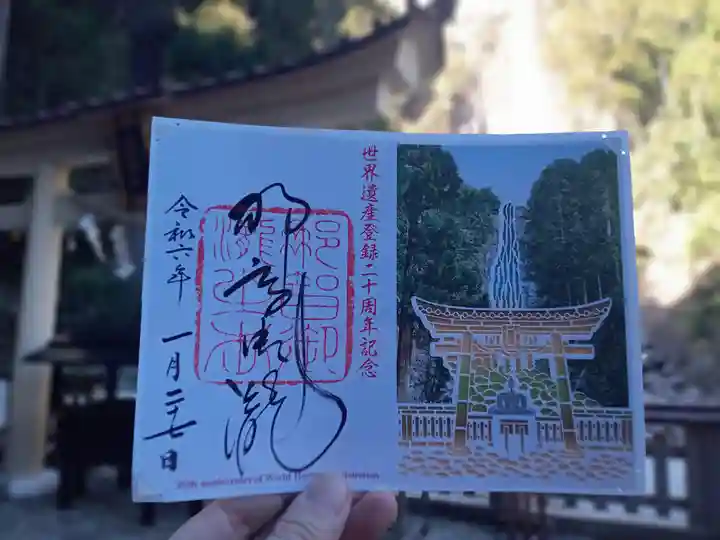 世界遺産登録二十周年記念
那智御瀧
那智御瀧之印
令和六年
一月二十七日
20th anniversary of World Heritage